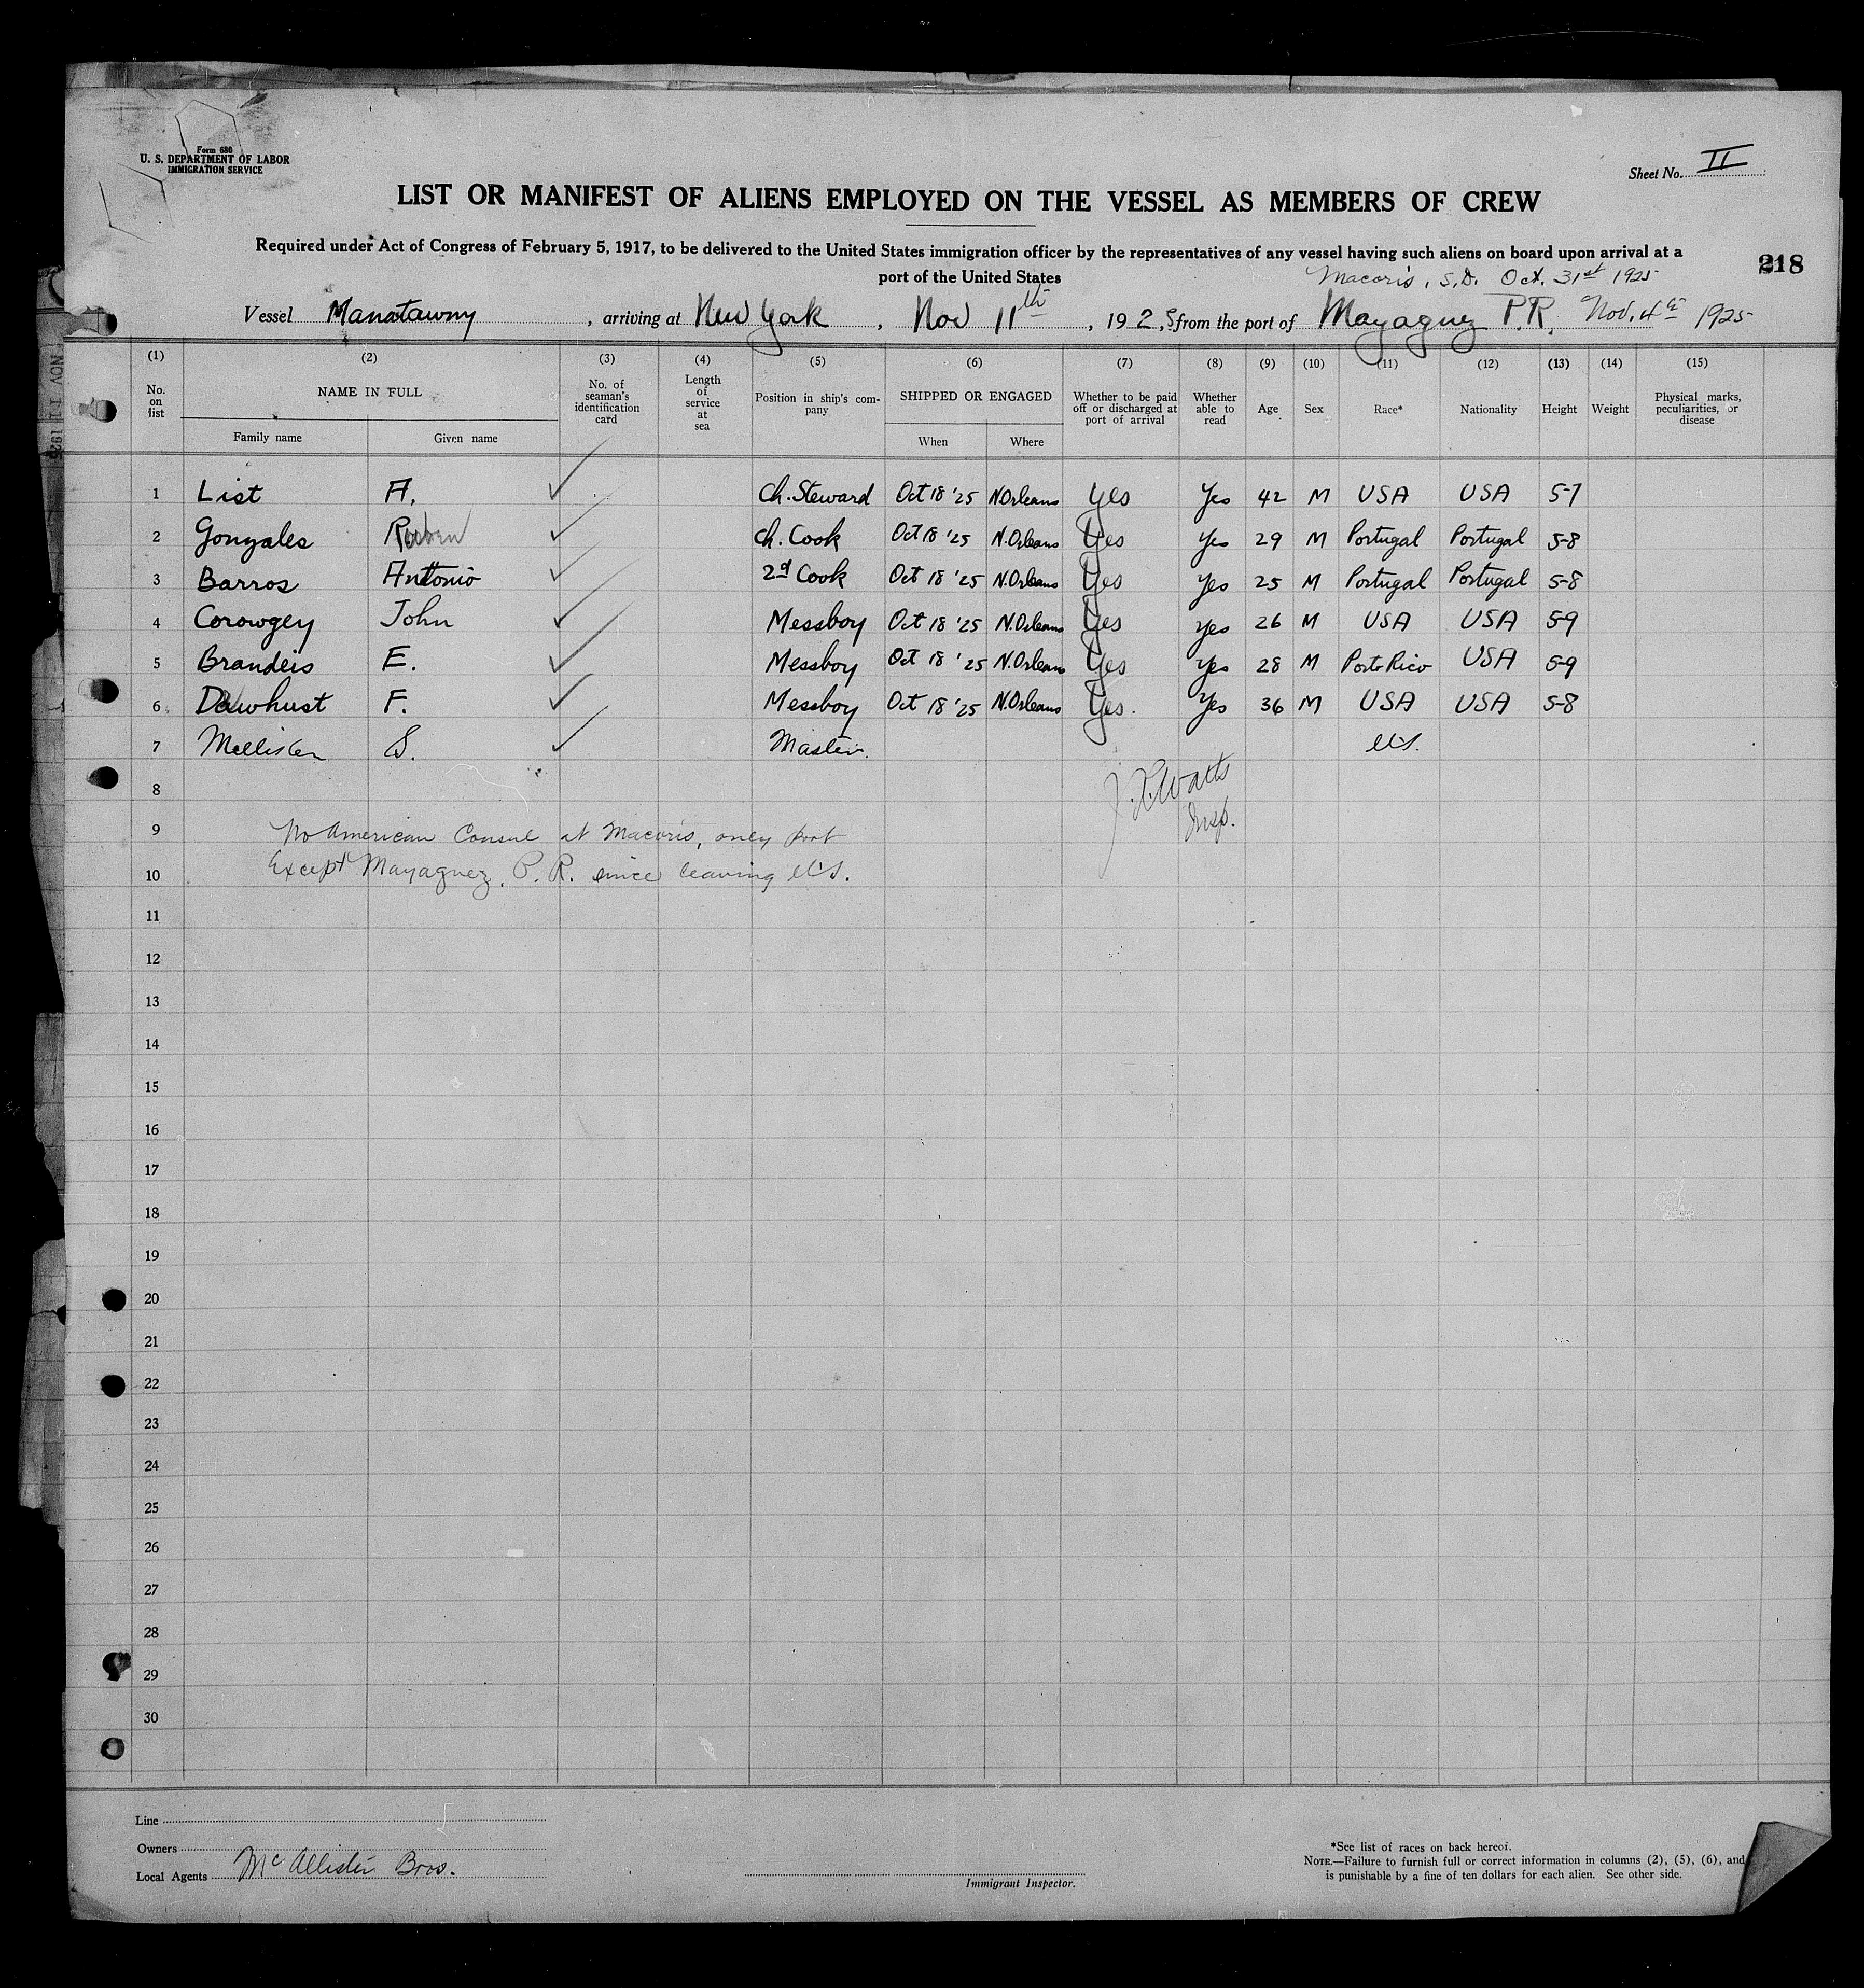 Form 680
U. S. DEPARTMENT OF LABOR
IMMIGRATION SERVICE
Sheet No. II
LIST OR MANIFEST OF ALIENS EMPLOYED ON THE VESSEL AS MEMBERS OF CREW
Required under Act of Congress of February 5, 1917, to be delivered to the United States immigration officer by the representatives of any vessel having such aliens on board upon arrival at a
port of the United States
218
Macoris, S.D. Oct. 31st 1925
Vessel Manatawny, arriving at New York, Nov 11th, 1925, from the port of Mayaguez P.R. Nov. 4th 1925
(1) (2) (3) (4) (5) (6) (7) (8) (9) (10) (11) (12) (13) (14) (15)
No. on list NAME IN FULL Family name Given name No. of seaman's identification card Length of service at sea Position in ship's company SHIPPED OR ENGAGED When Where Whether to be paid off or discharged at port of arrival Whether able to read Age Sex Race* Nationality Height Weight Physical marks, peculiarities, or disease
1 List A. Ch. Steward Oct 18 '25 N Orleans Yes Yes 42 M USA USA 5-7
2 Gonzales Reuben Ch. Cook Oct 18 '25 N. Orleans Yes Yes 29 M Portugal Portugal 5-8
3 Barros Antonio 2d Cook Oct 18 '25 N. Orleans Yes Yes 25 M Portugal Portugal 5-8
4 Corowgey John Messboy Oct 18 '25 N. Orleans Yes Yes 26 M USA USA 5-9
5 Brandeis E. Messboy Oct 18 '25 N. Orleans Yes Yes 28 M Porto Rico USA 5-9
6 F. Messboy Oct 18 '25 N. Orleans Yes. Yes 36 M USA USA 5-8
7 Master. U.S.
8
Watts
Insp.
9 No American Consul at Macoris, only port
10 Except Mayaguez, P. R. since leaving U.S.
11
12
13
14
15
16
17
18
19
20
21
22
23
24
25
26
27
28
29
30
Line
Owners
Local Agents McAllister Bros.
Immigrant Inspector.
*See list of races on back hereof.
NOTE.—Failure to furnish full or correct information in columns (2), (5), (6), and
is punishable by a fine of ten dollars for each alien. See other side.
NOV 11 1925